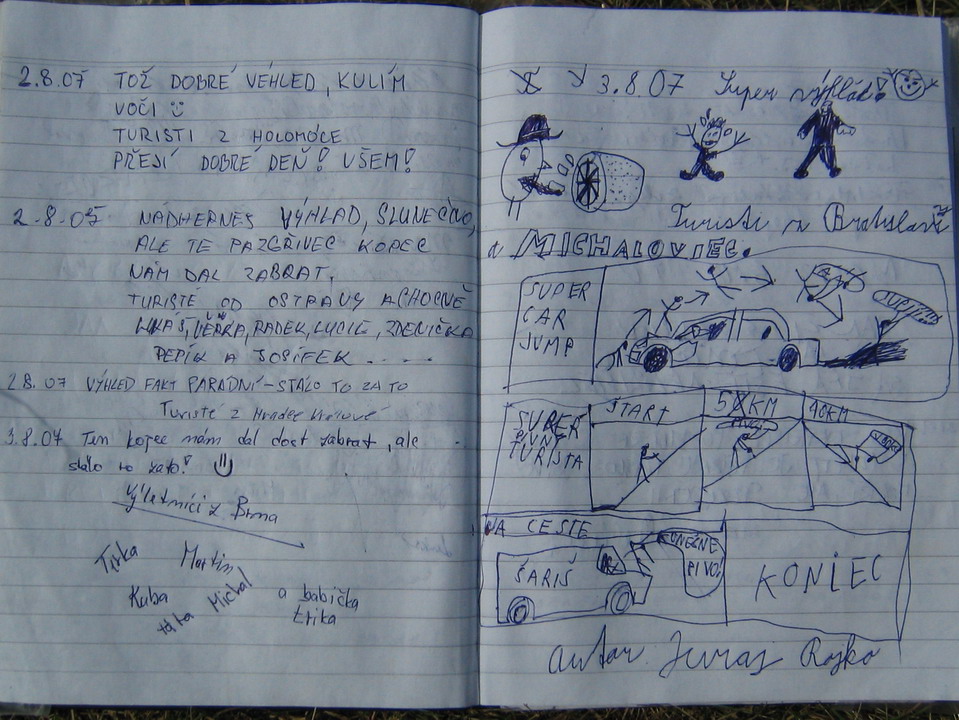 2.8.07 TOŽ DOBRÉ VÉHLED, KULÍM
VOČI
TURISTI Z HOLOMÓCE
PŘEJÍ DOBRÉ DEŇ! VŠEM!
2.8.07 NÁDHERNEJ VÝHLAD, SLUNEČNO,
ALE TE PAZGŘIVEC KOPEC
NÁM DAL ZABRAT,
TURISTÉ OD OSTRAVY A CHOCNĚ
LUKÁŠ, VĚRKA, RADEK, LUCIE, ZDENIČKA
PEPÍK A JOSÍFEK . . . . .
2.8.07 VÝHLED FAKT PARÁDNÍ - STÁLO TO ZA TO
Turisté z Hradce Králové
3.8.07 Ten kopec nám dal dost zabrat, ale
stálo to zato!
Výletníci z Brna
Tirka Martin
Kuba táta Michal a babička
Erika
3.8.07 Super výhľad!
Turisti z Bratislavi
a MICHALOVIEC.
SUPER
CAR
JUMP
SUPER
PIVNÝ
TURISTA
ŠTART
5 KM
10KM
NA CESTE
ŠARIŠ
KONEČNE
PIVO!
KONIEC
autor Juraj Rojko